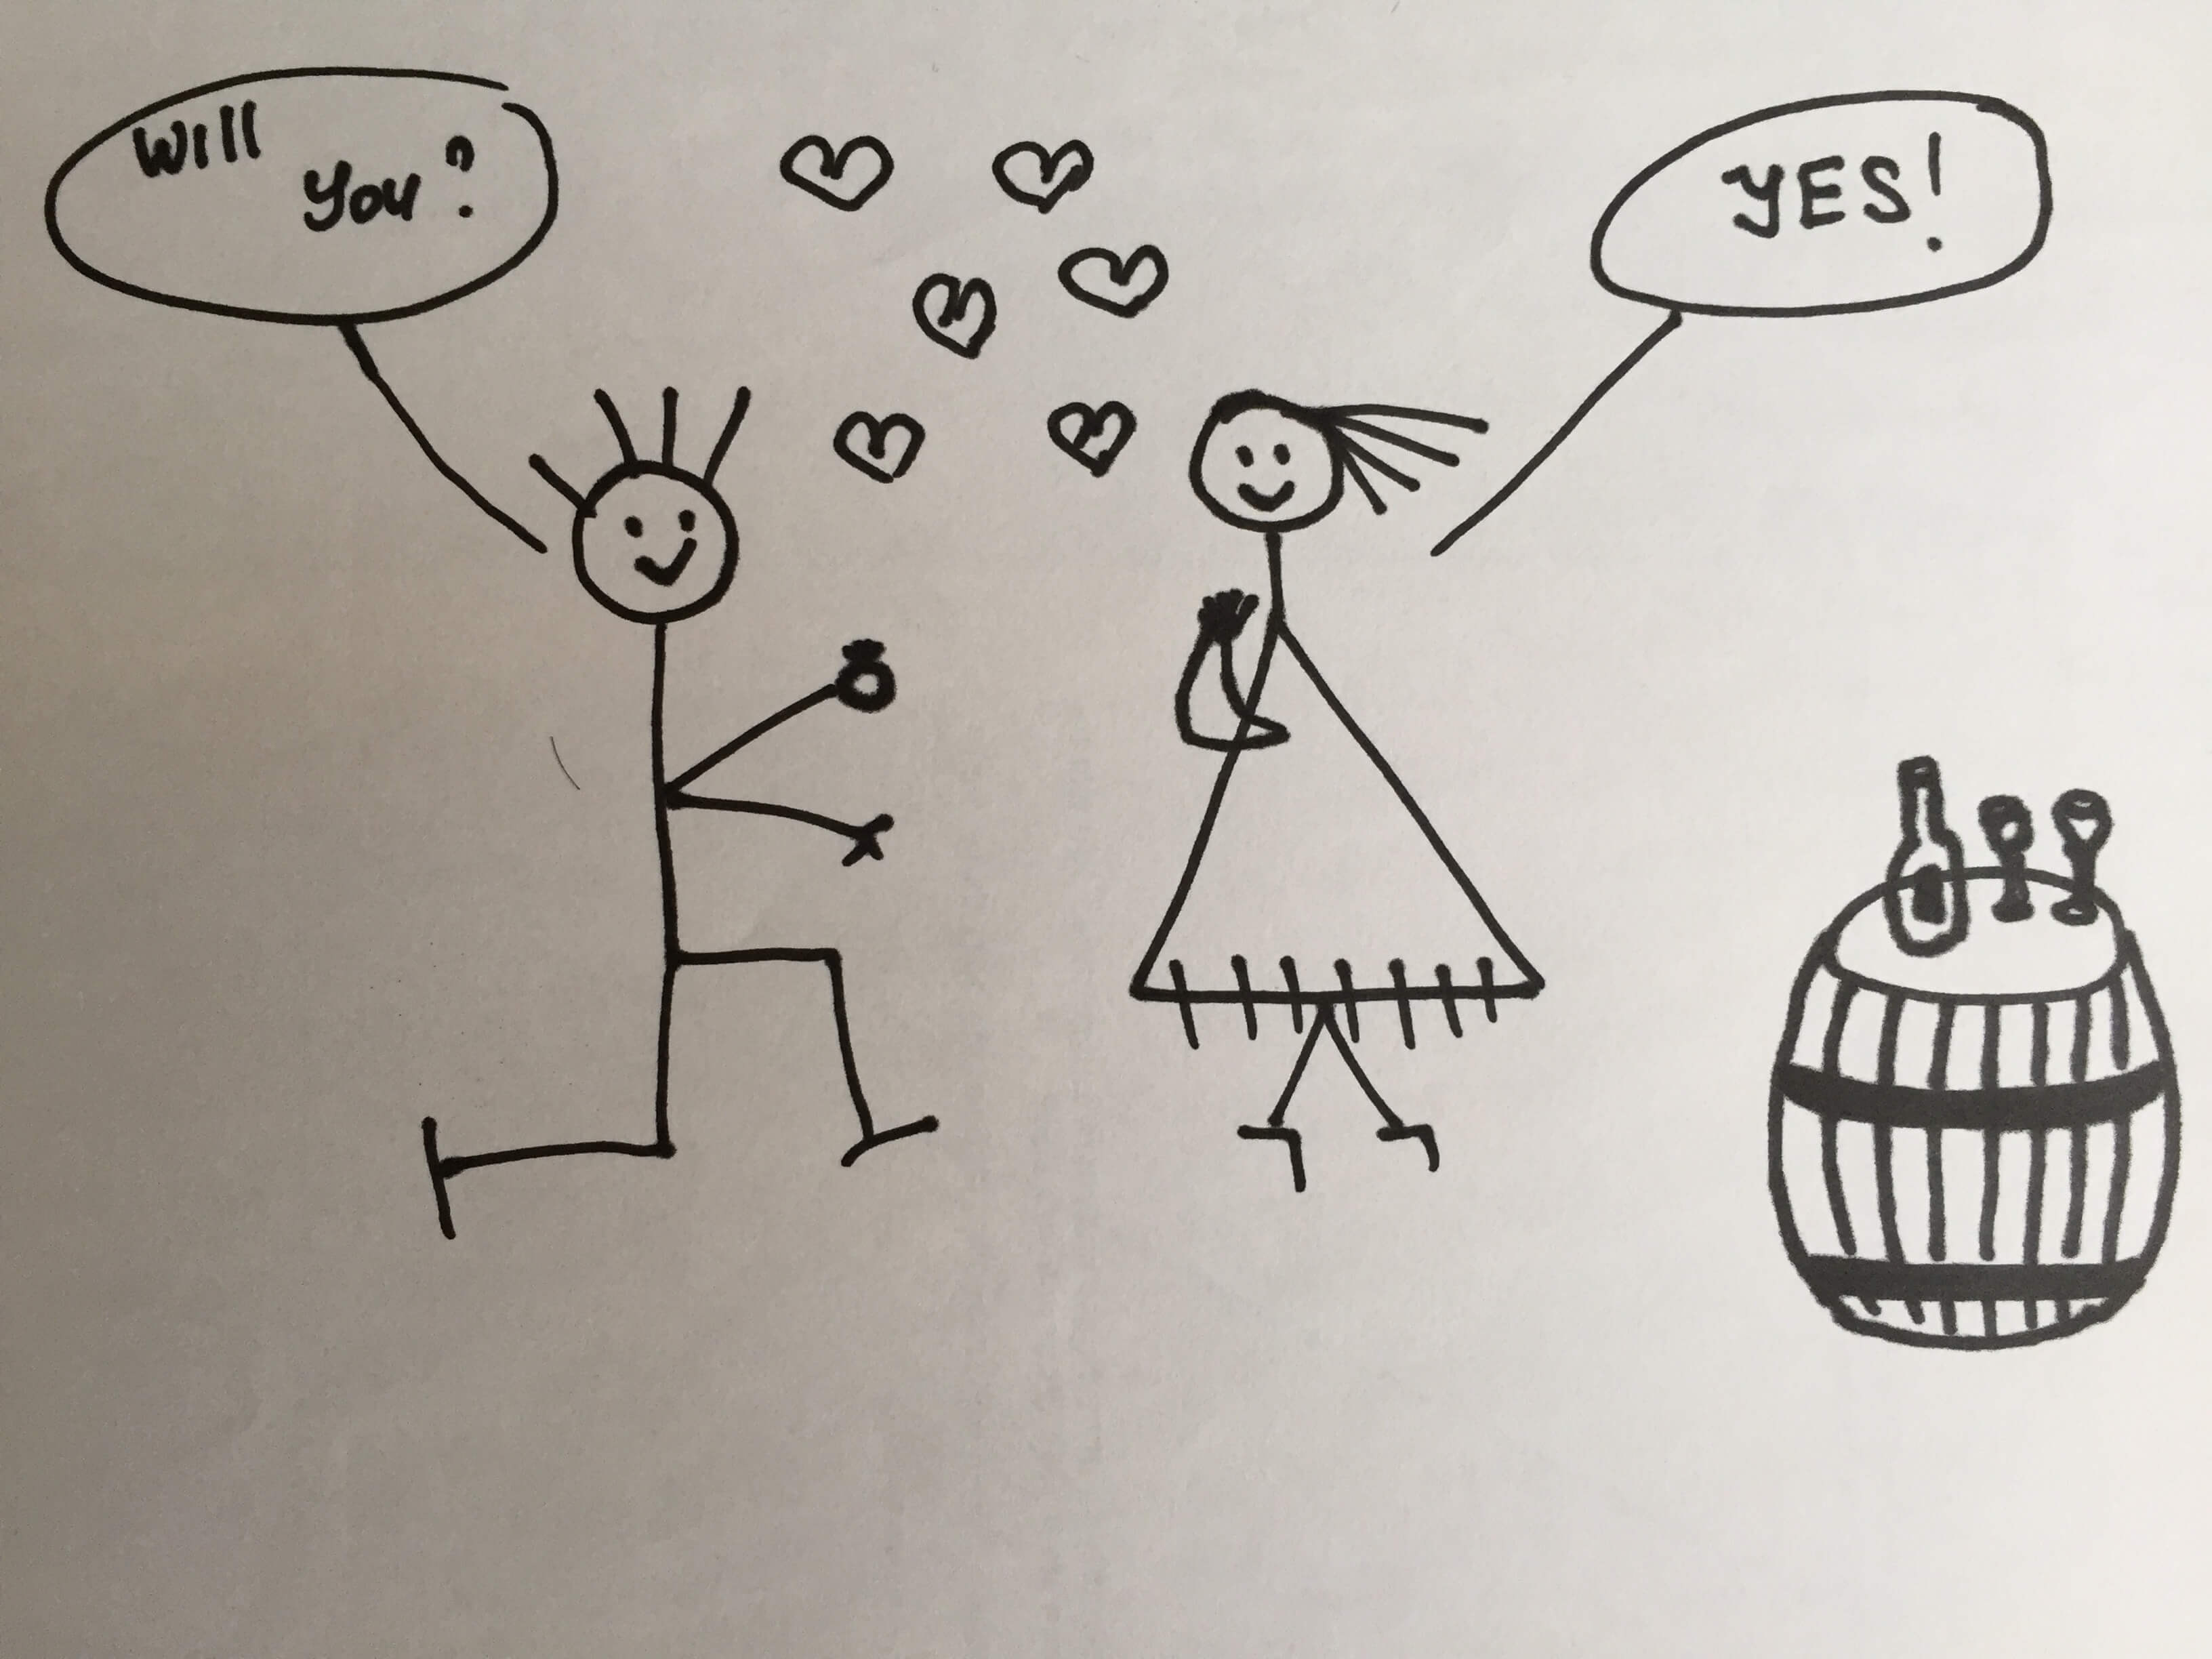 Will
you?
YES!